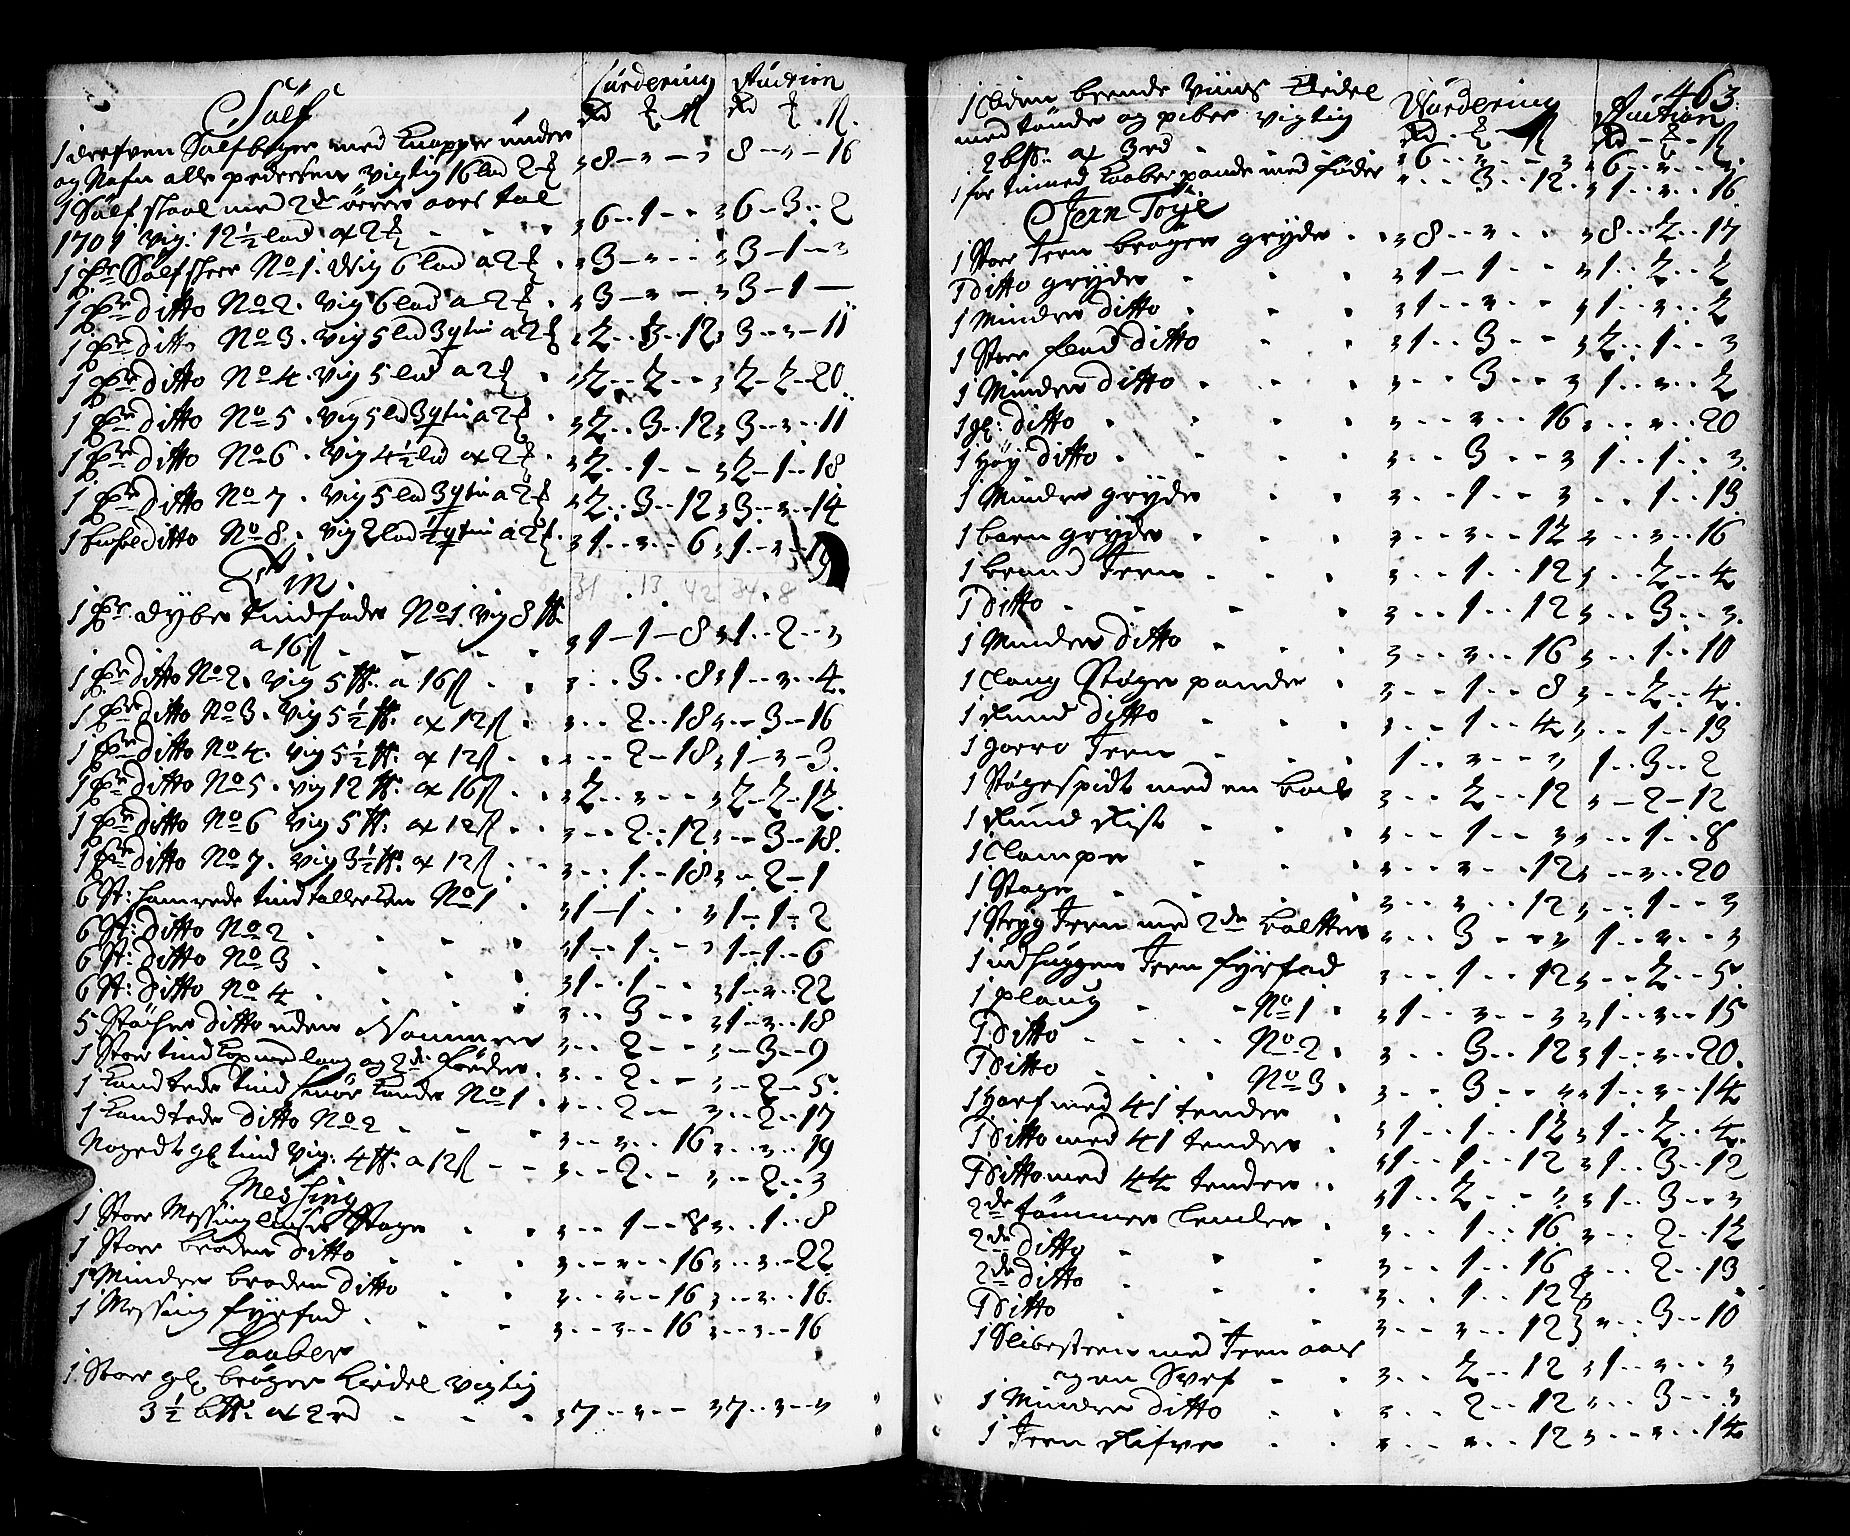 Sølf
Vurdering Auction
Rd ₰ ß Rd ₰ ß
1 drefven Sølfbeger med Knapper under
og Nafn alle pedersen vigtig 16 lod 2 ₰ 8 - - 8 - - 16
1 Sølf skaal med 2de ører aars tal
1701 vig: 12½ lod a 2 ₰ 6 - 1 - 6 - 3 - 2
1 Pr Sølf skeer No 1. Wig 6 lod a 2 ₰ 3 - - 3 - 1 -
1 Pr ditto No 2. vig 6 lod a 2 ₰ 3 - - 3 - 1 -
1 Pr ditto No 3. vig 5 lod 3 qtin a 2 ₰ 2 - 3 - 12 3 - - 11
1 Pr ditto No 4. vig 5 lod a 2 ₰ 2 - 2 - 2 - 2 - 20
1 Pr ditto No 5. vig 5 lod 3 qtin a 2 ₰ 2 - 3 - 12 3 - - 11
1 Pr ditto No 6. vig 4½ lod a 2 ₰ 2 - 1 - 2 - 1 - 18
1 Pr ditto No 7. vig 5 lod 3 qtin a 2 ₰ 2 - 3 - 12 3 - - 14
1 ditto No 8. vig 2 lod qtin a 2 ₰ 1 - - 6 1 - - 19
31 . 13 42 34 . 8
Tin.
1 Pr dybe tindfade No 1. vig 8 ℔
a 16 ß 1 - 1 - 8 1 - 2 -
1 Pr ditto No 2. vig 5 ℔. a 16 ß - 3 - 8 1 - - 4
1 Pr ditto No 3. vig 5½ ℔. a 12 ß - 2 - 18 - 3 - 16
1 Pr ditto No 4. vig 5½ ℔. a 12 ß - 2 - 18 1 - - 3
1 Pr ditto No 5. vig 12 ℔. a 16 ß 2 - - 2 - 2 - 12
1 Pr ditto No 6 vig 5 ℔. a 12 ß - 2 - 12 - 3 - 18
1 Pr ditto No 7. vig 3½ ℔. a 12 ß - 1 - 18 - 2 - 1
6 St: hamrede tindtallerken No 1 1 - 1 - 1 - 1 - 2
6 St: ditto No 2 1 - 1 - 1 - 1 - 6
6 St: ditto No 3 1 - 1 - 1 - - 22
6 St: ditto No 4 - 3 - 1 - - 18
5 Stöcher ditto uden Nommer - 2 - - 3 - 9
1 Stoer tind Kop med laag og 2de - 2 - - 2 - 5
1 Kandtede tind smör Kande No 1 - 2 - - 2 - 17
1 Kandtede ditto No 2 - - 16 - - 19
Nogedt gl tind vig: 4 ℔. a 12 ß - 2 - - 2 -
Messing
1 Stoer Messing liuse Stage - 1 - 8 - 1 - 8
1 Stoer ditto - - 16 - - 22
1 Mindre ditto - - 16 - - 16
1 Messing fyrfad - - 16 - - 16
Kaaber
1 Stoer gl brøger Kiedel vigtig
3½ b℔. a 2 rd 7 - - 7 - -
463
1 liden Kiedel Wurdering Auction
med tönde og piber vigtig Rd ₰ ß Rd ₰ ß
2 b℔. a 3 rd 6 - - 6 - -
1 for tinned Kaaber pande med føder - 3 - 12 1 - - 16
Jern Töye
1 Stoer Jern brøger gryde 8 - - 8 - 2 - 17
1 Ditto gryde 1 - 1 - 1 - 2 - 2
1 Minder ditto 1 - - 1 - - 2
1 Stoer flad ditto 1 - 3 - 2 - 1 -
1 Minder ditto - 3 - 1 - - 2
1 gl: ditto - - 16 - - 20
1 høy ditto - 3 - 1 - 1 -
1 Minder gryde - 1 - - 1 - 13
1 barn gryde - - 12 - - 16
1 brand Jern - 1 - 12 - 2 - 4
1 Ditto - 1 - 12 - 3 -
1 Minder ditto - - 16 - 1 - 10
1 lang Støge pande - 1 - 8 - 2 - 4
1 Rund ditto - 1 - 4 - 1 - 13
1 gorro Jern 1 - - 1 - 3 - 2
1 Støgespidt med en - 2 - 12 - 2 - 12
1 Rund Rist - 1 - - 1 - 8
1 lampe - - 12 - - 20
1 Stage - - 12 - 1 -
1 Stryg Jern med 2de bolter - 3 - 1 - -
1 udhuggen Jern fyrfad - 1 - 12 - 2 - 5
1 ploug No 1 1 - - 1 - - 15
1 Ditto No 2 - 3 - 12 1 - - 20
1 Ditto No 3 - 3 - 1 - - 14
1 Harf med 41 tender 1 - 1 - 12 1 - 2 - 4
1 Ditto med 41 tender 1 - 1 - 12 1 - 3 - 12
1 Ditto med 44 tender 1 - 2 - 1 - 3 -
2de tömmer lender - 1 - 16 - 2 - 12
2de ditto - 1 - 16 - 2 - 13
2de ditto - 1 - 12
1 Ditto - - 12 - 3 - 10
1 Slibesteen med Jern aas
og en Svef - 2 - 12 1 - -
1 Minder ditto - 2 - 12 - 3 -
1 Jern Rifve - - 12 - - 14